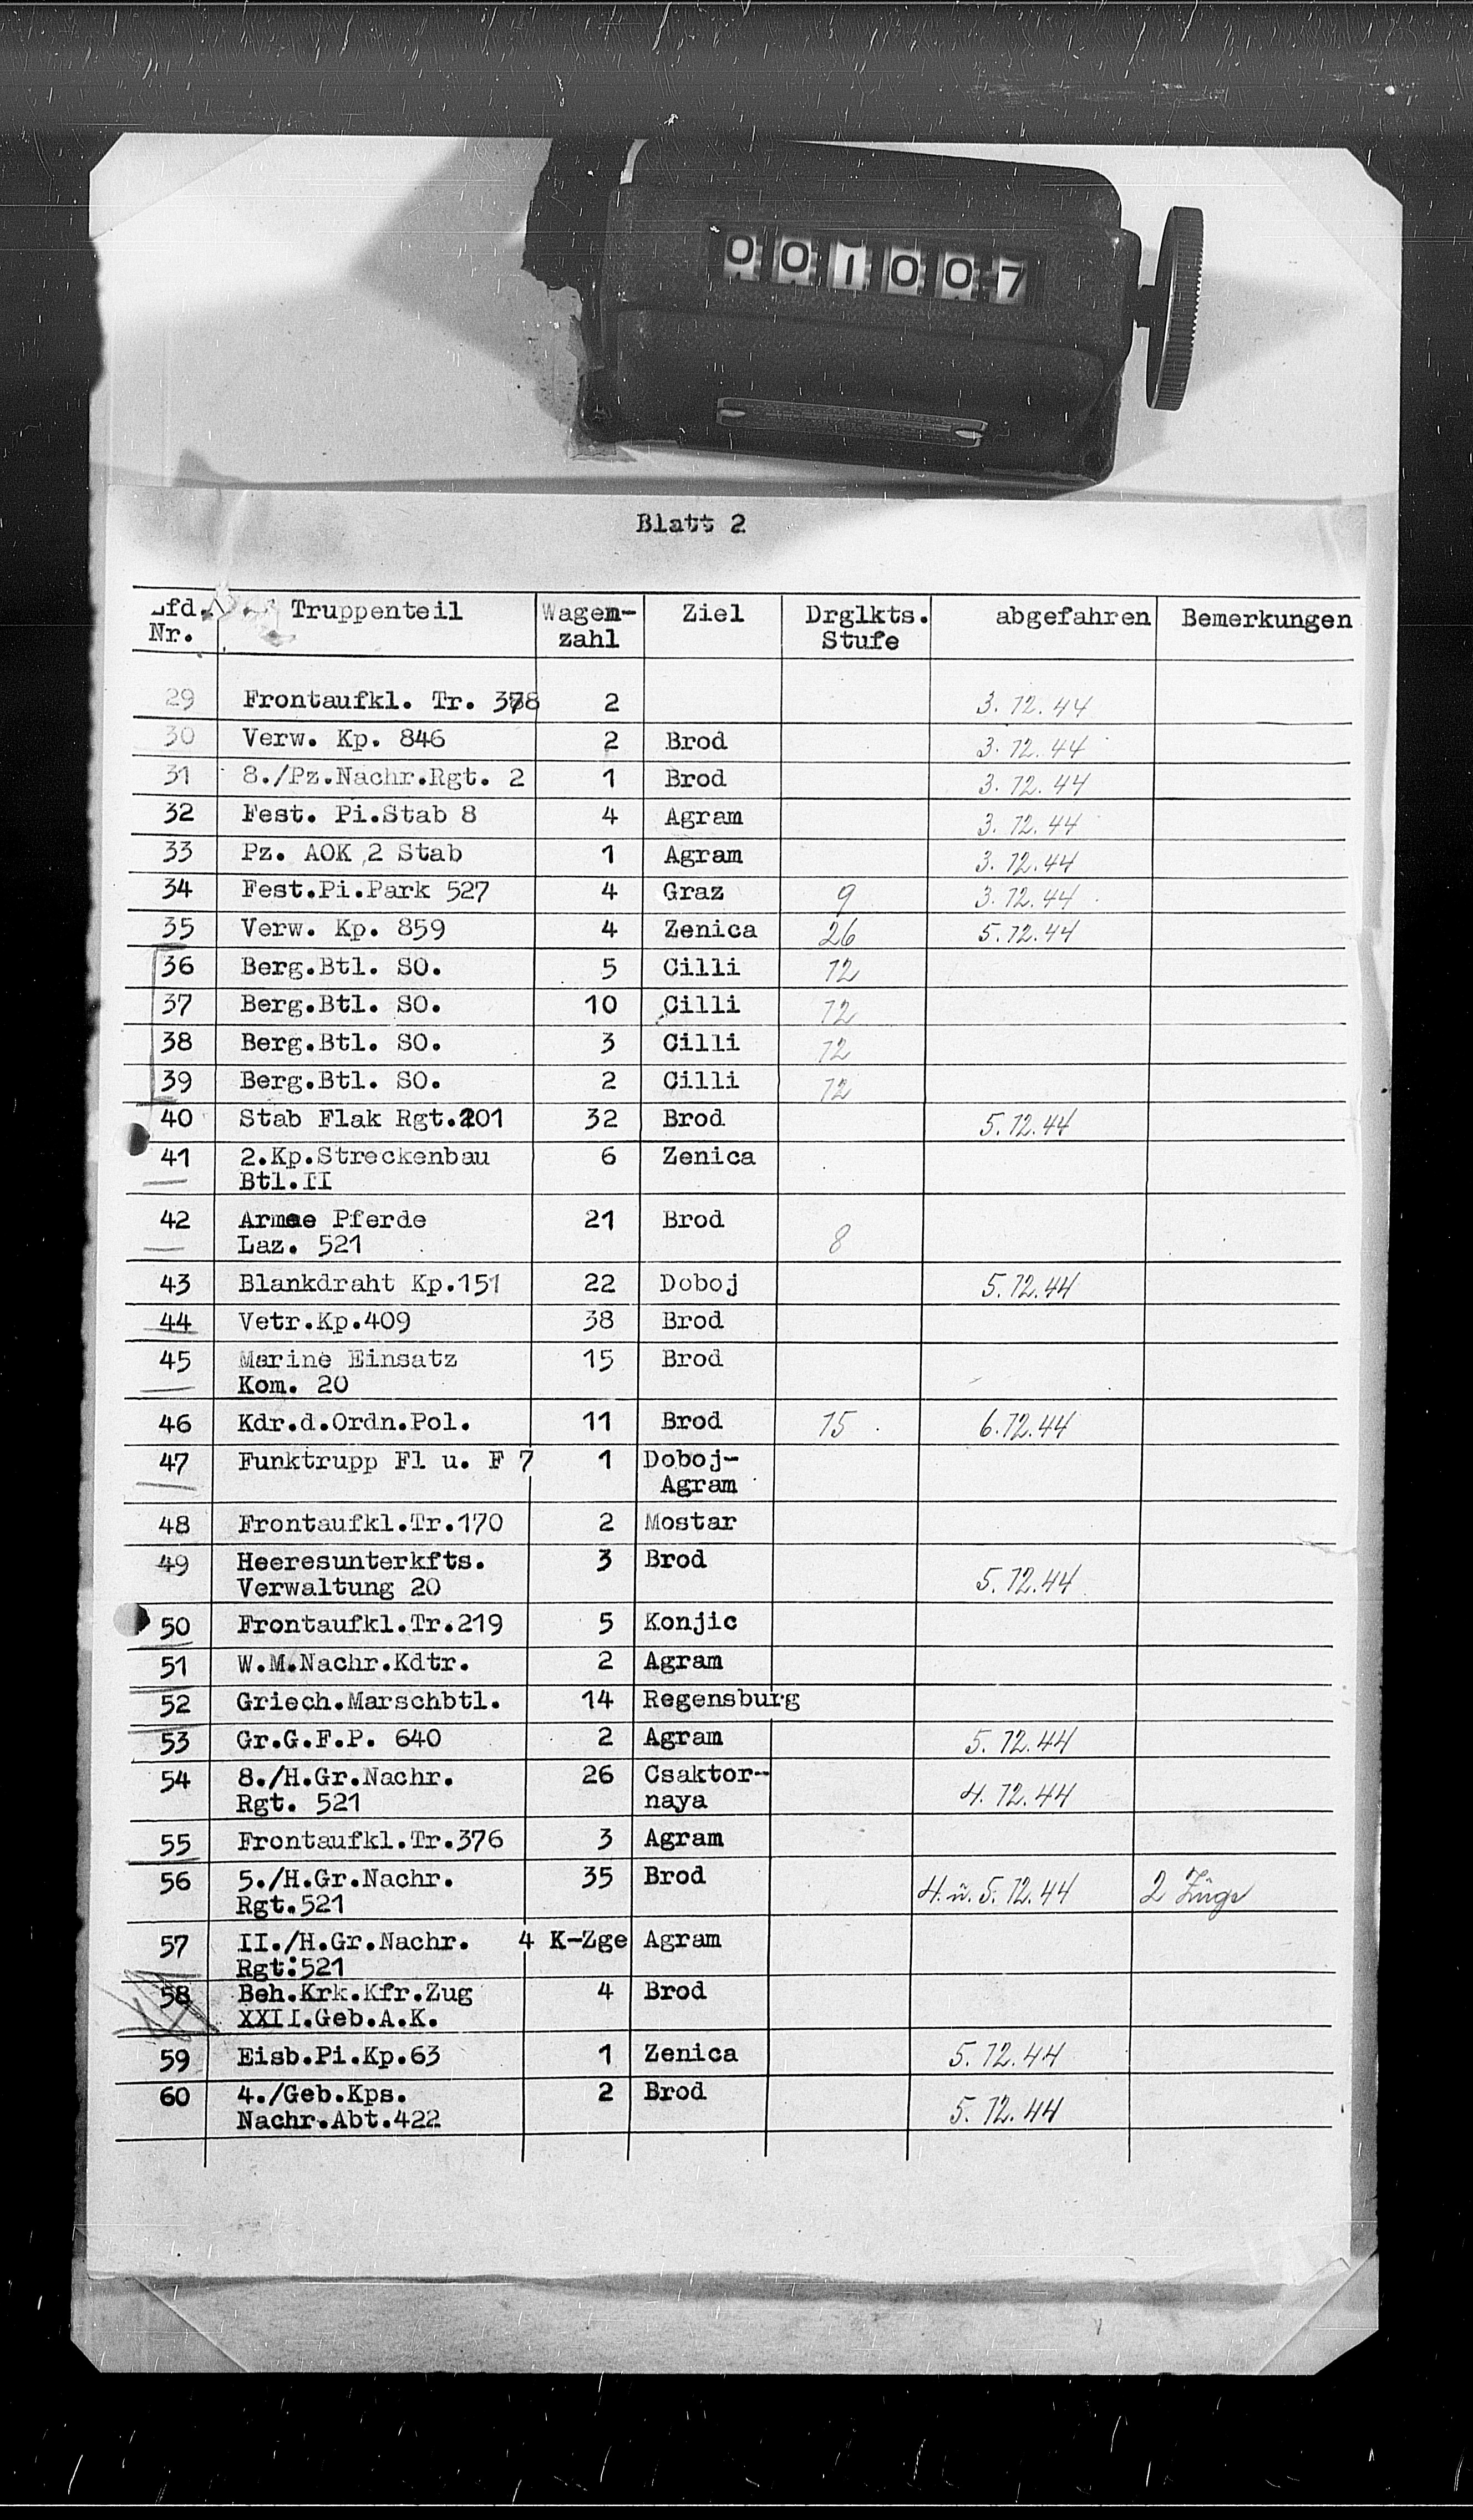 001007
Blatt 2
Lfd. Nr. Truppenteil Wagen-zahl Ziel Drglkts. Stufe abgefahren Bemerkungen
29 Frontaufkl. Tr. 2 3.12.44
30 Verw. Kp. 846 2 Brod 3.12.44
31 8./Pz.Nachr.Rgt. 2 1 Brod 3.12.44
32 Fest. Pi.Stab 8 4 Agram 3.12.44
33 Pz. AOK 2 Stab 1 Agram 3.12.44
34 Fest.Pi.Park 527 4 Graz 9 3.12.44
35 Verw. Kp. 859 4 Zenica 26 5.12.44
36 Berg.Btl. SO. 5 Cilli 12
37 Berg.Btl. SO. 10 Cilli 12
38 Berg.Btl. SO. 3 Cilli 12
39 Berg.Btl. SO. 2 Cilli 12
40 Stab Flak Rgt.201 32 Brod 5.12.44
41 2.Kp.Streckenbau 6 Zenica
Btl.II
42 Armee Pferde 21 Brod
Laz. 521 8
43 Blankdraht Kp.151 22 Doboj 5.12.44
44 Vetr.Kp.409 38 Brod
45 Marine Einsatz 15 Brod
Kom. 20
46 Kdr.d.Ordn.Pol. 11 Brod 15 6.12.44
47 Funktrupp Fl u. F 7 1 Doboj-
Agram
48 Frontaufkl.Tr.170 2 Mostar
49 Heeresunterkfts. 3 Brod
Verwaltung 20 5.12.44
50 Frontaufkl.Tr.219 5 Konjic
51 W.M.Nachr.Kdtr. 2 Agram
52 Griech.Marschbtl. 14 Regensburg
53 Gr.G.F.P. 640 2 Agram 5.12.44
54 8./H.Gr.Nachr. 26 Csaktor-
Rgt. 521 naya 4.12.44
55 Frontaufkl.Tr.376 3 Agram
56 5./H.Gr.Nachr. 35 Brod
Rgt.521 4.u.5.12.44 2 Züge
57 II./H.Gr.Nachr. 4 K-Zge Agram
Rgt:521
58 Beh.Krk.Kfr.Zug 4 Brod
XXII.Geb.A.K.
59 Eisb.Pi.Kp.63 1 Zenica 5.12.44
60 4./Geb.Kps. 2 Brod
Nachr.Abt.422 5.12.44